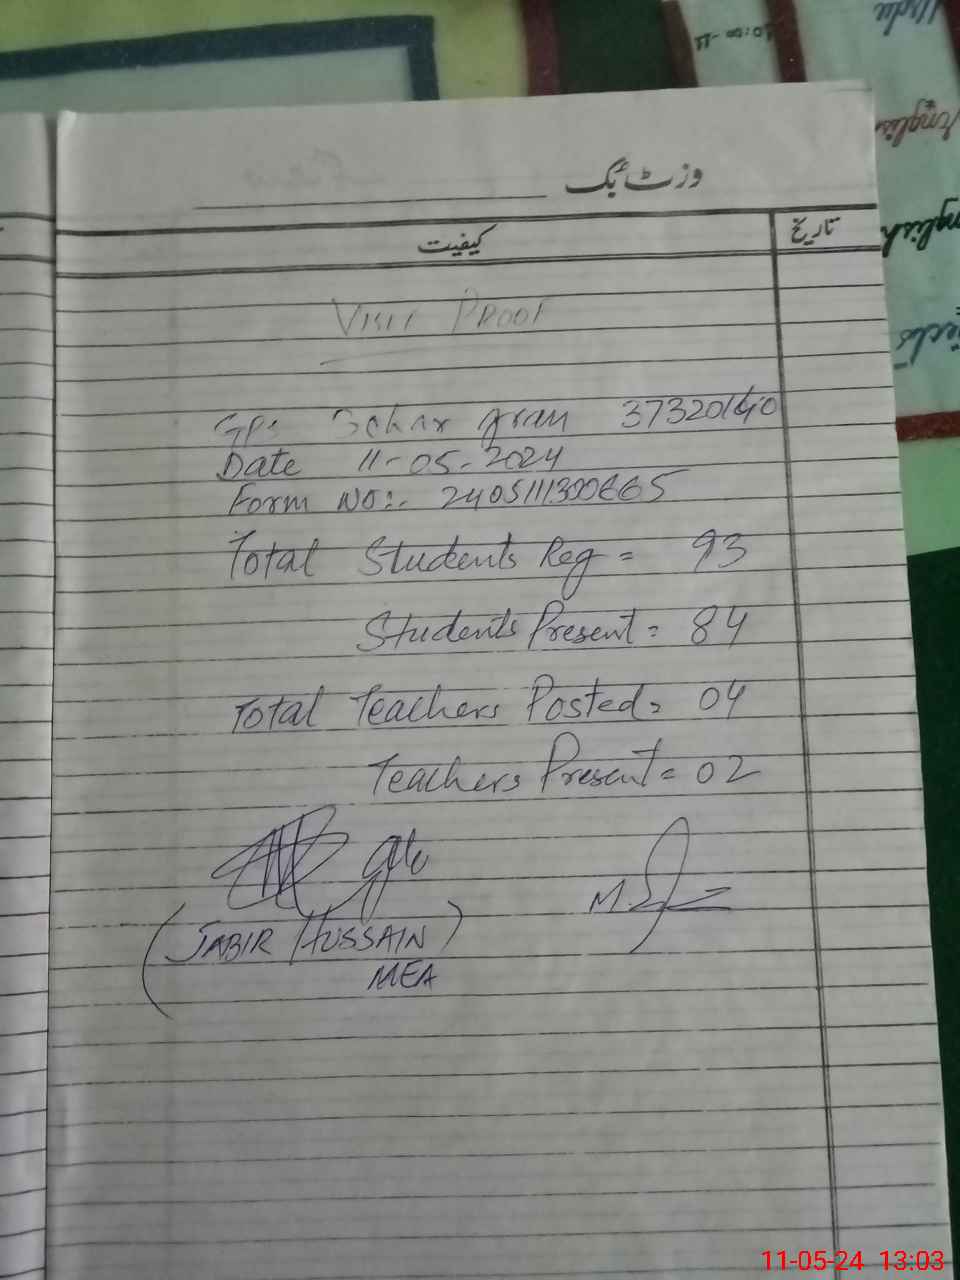 وزٹ بک
کیفیت
تاریخ
VISIT PROOF
GPS gram 37320140
Date 11-05-2024
Form No:- 2405111300665
Total Students Reg = 93
Students Present = 84
Total Teachers Posted = 04
Teachers Present = 02
(JABIR HUSSAIN)
MEA
Urdu
10:00-11
English
English
11-05-24 13:03